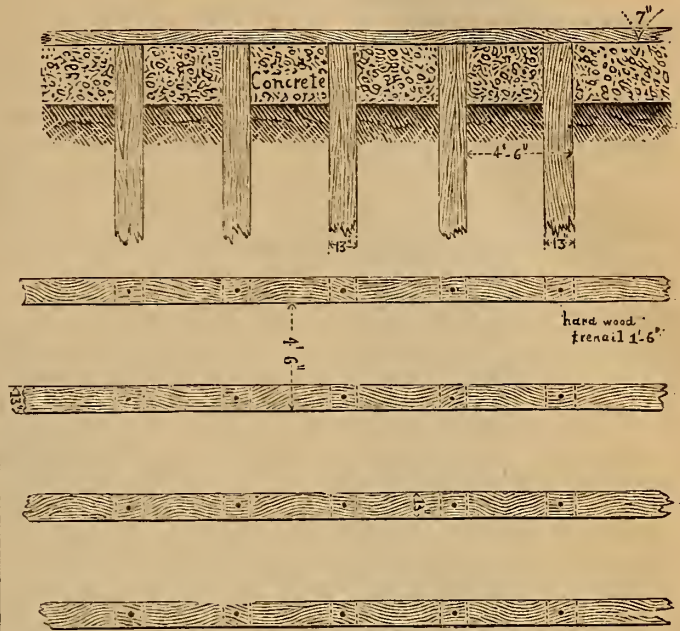 7"
Concrete
4'-6"
13"
13"
hard wood
trenail 1'-6"
4' 6"
13"
13"